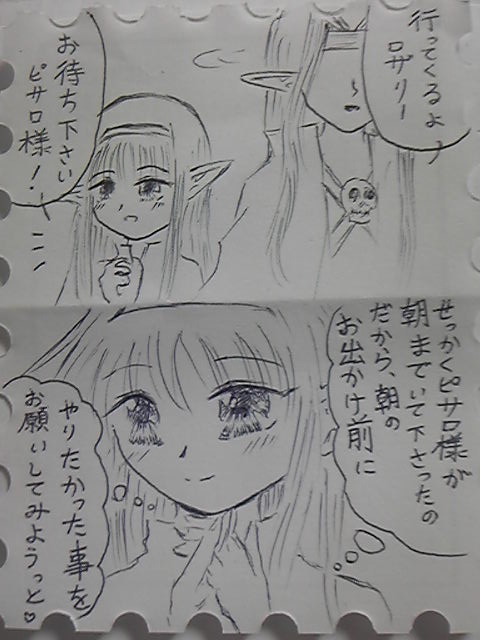 行ってくるよ、
ロザリー
お待ち下さい
ピサロ様！
せっかくピサロ様が
朝までいて下さったの
だから、朝の
お出かけ前に
やりたかった事を
お願いしてみようっと♡